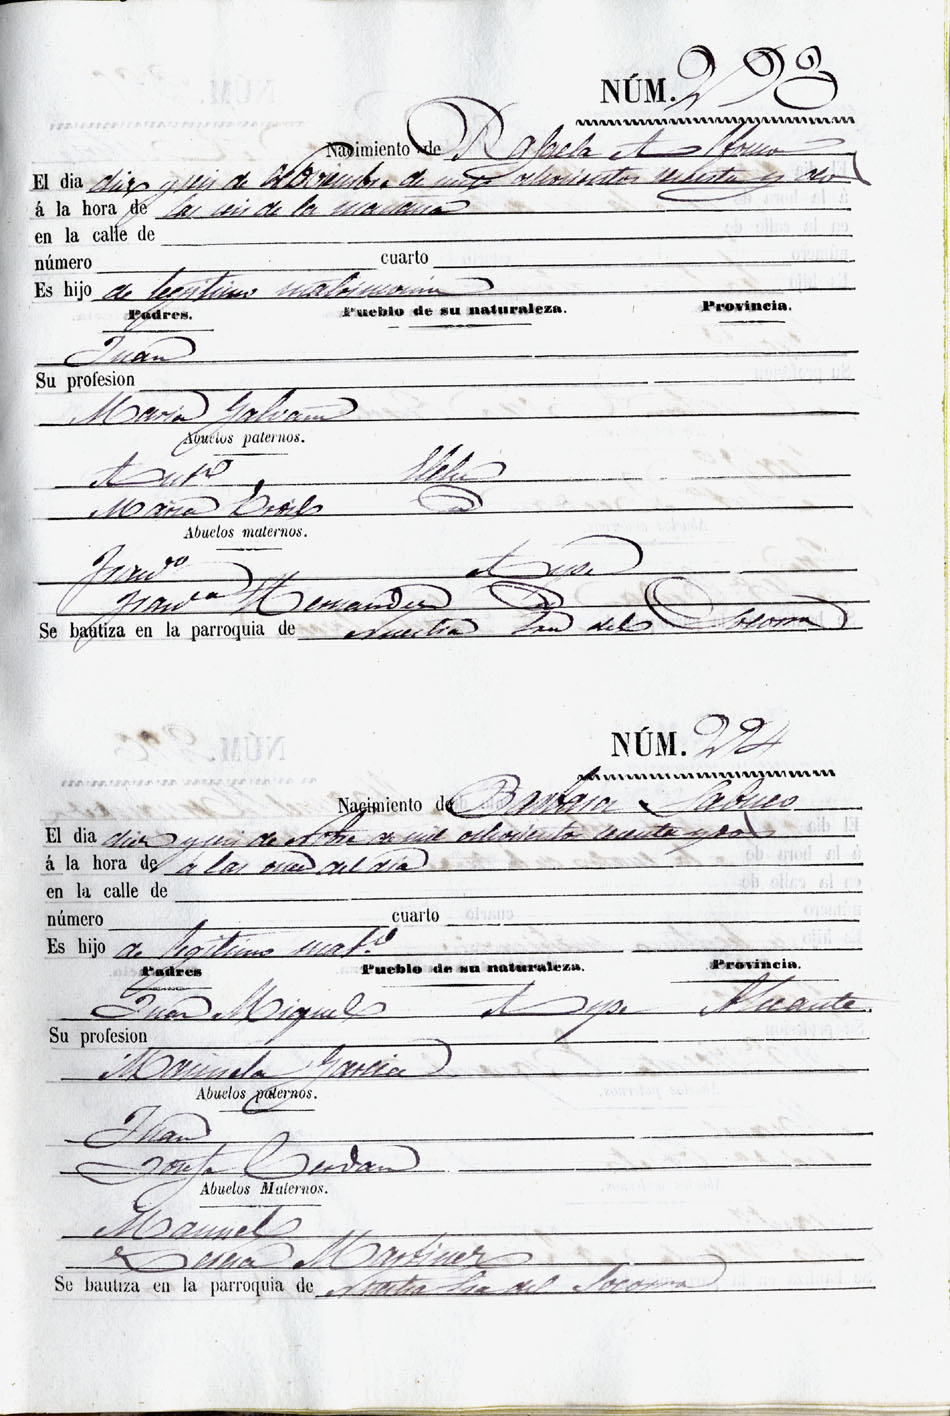 NÚM. 293
Nacimiento de Rafaela Alfonso
El dia diez y seis de Diciembre de mil ochocientos sesenta y dos
á la hora de las seis de la mañana
en la calle de
número cuarto
Es hijo de legitimo matrimonio
Padres. Pueblo de su naturaleza. Provincia.
Juan
Su profesion
Maria Galvañ
Abuelos paternos.
Antº Elche
Maria Id
Abuelos maternos.
Franco Aspe
Franca Hernandez Id
Se bautiza en la parroquia de Nuestra Sra del Socorro
NÚM. 294
Nacimiento de Barbara
El dia diez y seis de de mil ochocientos sesenta y dos
á la hora de a las once del dia
en la calle de
número cuarto
Es hijo de legitimo matº
Padres Pueblo de su naturaleza. Provincia.
Juan Miguel Aspe Alicante.
Su profesion
Manuela Garcia
Abuelos paternos.
Juan
Josefa Cerdan
Abuelos Maternos.
Manuel
Teresa Martinez
Se bautiza en la parroquia de Nuestra Sra del Socorro